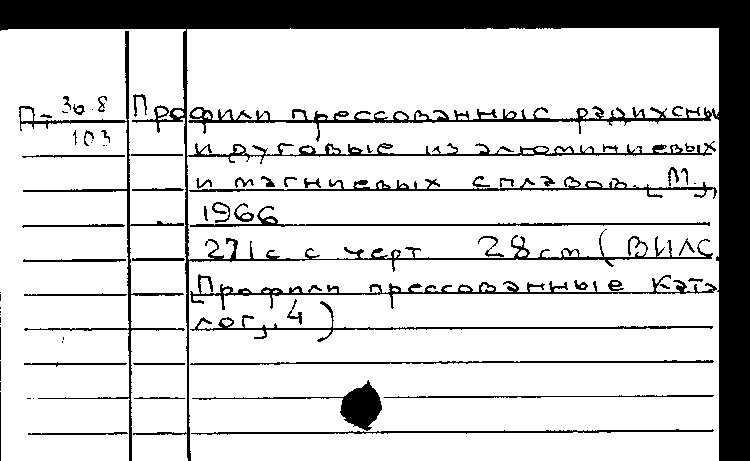 Пт 30.8 Профили прессованные радиусны
103 и дуговые из алюминиевых
и магниевых сплавов. [М.],
1966
271 с с черт 28 см (ВИЛС.
[Профили прессованные Ката
лог], 4)